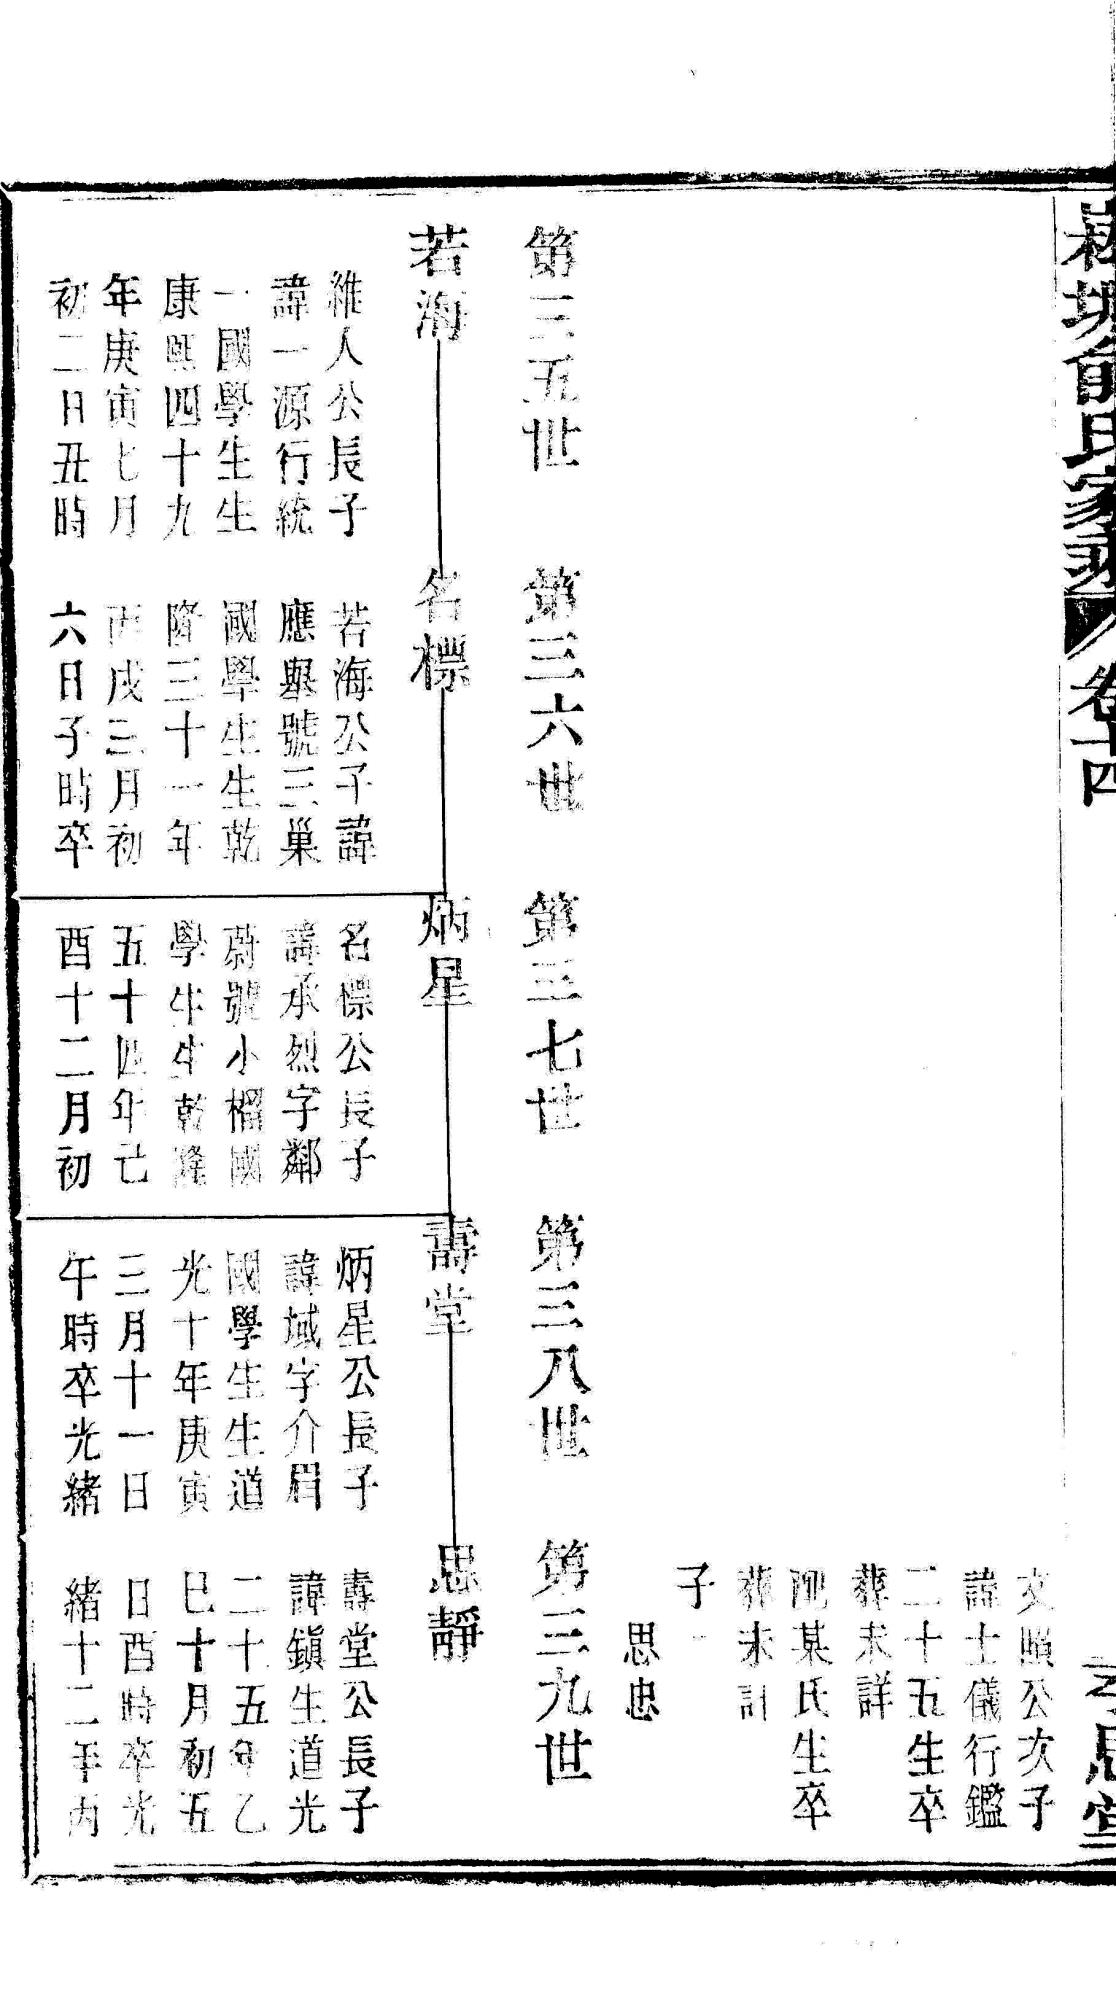 俞氏家乘 卷十四
思堂
文照公次子
諱士儀行鑑
二十五生卒
葬未詳
配某氏生卒
葬未詳
子一
思忠
第三五世
第三六世
第三七世
第三八世
第三九世
若海
維人公長子
諱一源行統
一國學生生
康熙四十九
年庚寅七月
初二日丑時
名標
若海公子諱
應舉號三巢
國學生生乾
隆三十一年
丙戌三月初
六日子時卒
炳星
名標公長子
諱承烈字鄰
蔚號小榴國
學生生乾隆
五十四年己
酉十二月初
壽堂
炳星公長子
諱域字介眉
國學生生道
光十年庚寅
三月十一日
午時卒光緒
思靜
壽堂公長子
諱鎮生道光
二十五年乙
巳十月初五
日酉時卒光
緒十二年丙